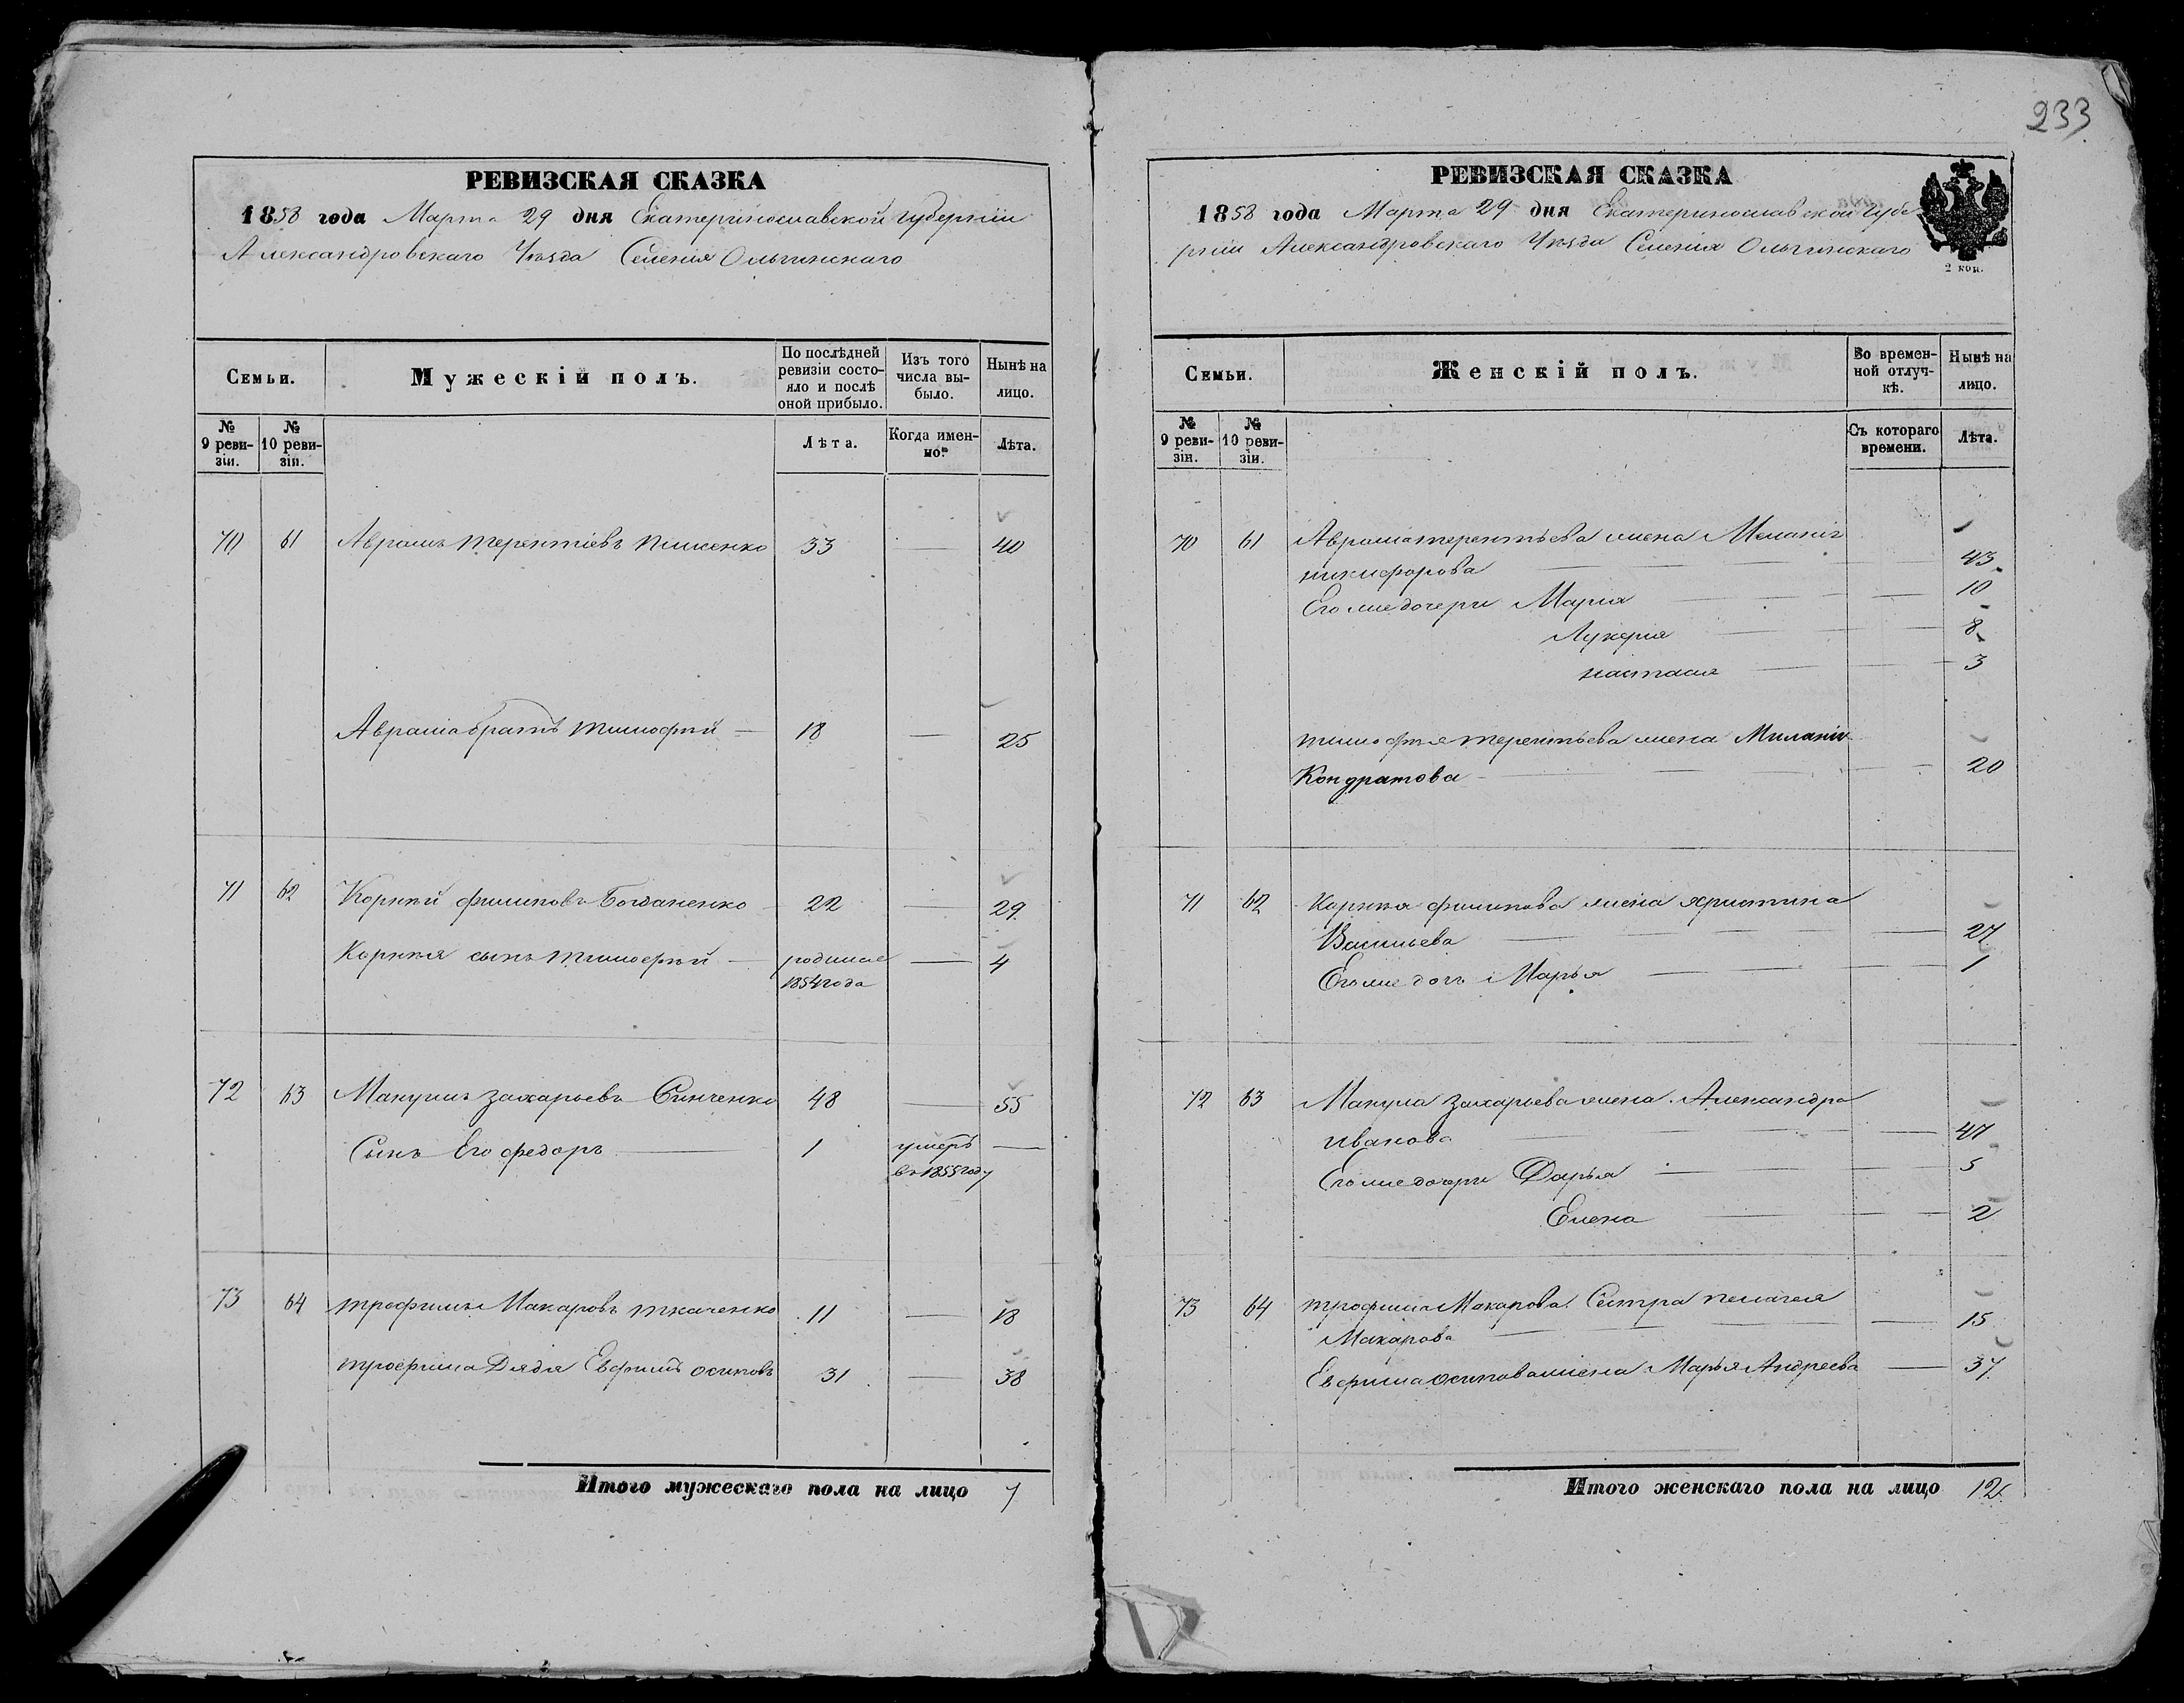 233
РЕВИЗСКАЯ СКАЗКА
1858 года Марта 29 дня Екатеринославской губернии
Александровскаго Уезда Селенія Ольгинскаго
Семьи.
Мужескій полъ.
По послѣдней ревизіи состо-
яло и послѣ оной прибыло.
Изъ того числа вы-
было.
Нынѣ на лицо.
№ 9 реви-
зіи.
№ 10 реви-
зіи.
Лѣта.
Когда имен-
но.
Лѣта.
70 61 Аврамъ Терентіевъ 33 — 40
Аврама братъ Тимофей — 18 — 25
71 62 Корней Филиповъ Богданенко 22 — 29
Корнея сынъ Тимофей — родился 1854 года — 4
72 63 Макумъ Захарьевъ Синченко 48 — 55
Сынъ Его Федоръ — 1 умеръ въ 1855 году —
73 64 Трофимъ Макаровъ Ткаченко 11 — 18
Трофима Дядя Евфимъ Осиповъ 31 — 38
Итого мужескаго пола на лицо 7
РЕВИЗСКАЯ СКАЗКА
1858 года Марта 29 дня Екатеринославской губе
рніи Александровскаго Уезда Селенія Ольгинскаго
2 коп.
Семьи.
Женскій полъ.
Во времен-
ной отлуч-
кѣ.
Нынѣ на лицо.
№ 9 реви-
зіи.
№ 10 реви-
зіи.
Съ котораго времени.
Лѣта.
70 61 Аврама Терентьева жена Меланія
Никифорова — 43
Его же дочери Марія — 10
Лукерія — 8
Настасія — 3
Тимофея Терентьева жена Миланія
Кондратова — 20
71 62 Корнея Филипова жена Христина
Васильева — 27
Его же дочь Марья — 1
72 63 Макума Захарьева жена Александра
Иванова — 47
Его же дочери Дарья — 5
Елена — 2
73 64 Трофима Макарова Сестра Пелагея
Макарова — 15
Евфима Осипова жена Марья Андреева — 37
Итого женскаго пола на лицо 12